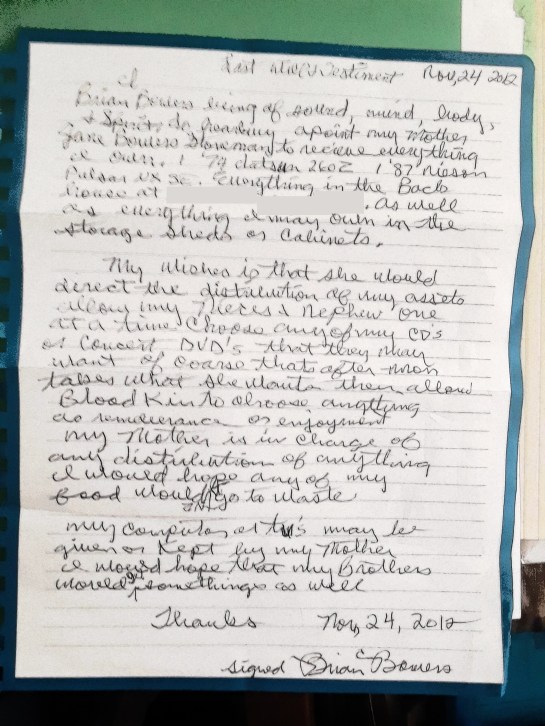 Last Will & Testiment Nov, 24 2012
I
Brian Bowers being of sound, mind, body,
& Spirit, do hereby apoint my Mother
Jane Bowers Stoneman to recieve everything
I own. 1 '74 datsun 260Z 1 '87 nissan
Pulsar NX SE. Everything in the Back
house at . As well
as everything I may own in the
storage sheds or Cabinets.
My wishes is that she would
direct the distribution of my assets
allow my Nieces & Nephew one
at a time choose any of my CD's
or Concert DVD's that they may
want of coarse thats after mom
takes what she wants then allow
Blood Kin to choose anything
as rememberance or enjoyment
my Mother is in charge of
any distribution of anything
I would hope any of my
food would go to waste
my computer or tv's may be
given or Kept by my Mother
I would hope that my Brothers
would get somethings as well
Thanks Nov, 24, 2012
signed Brian C Bowers